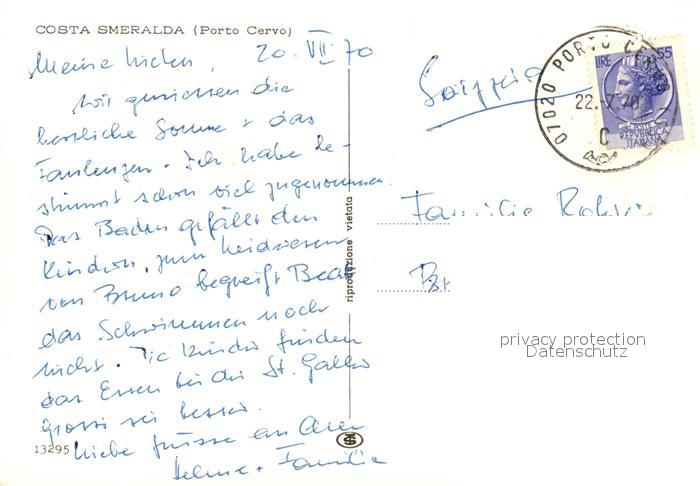 COSTA SMERALDA (Porto Cervo)
Meine Lieben, 20. VII. 70
Wir geniessen die
herrliche Sonne + das
Faulenzen. Ich habe be-
stimmt schon viel zugenommen.
Das Baden gefällt den
Kindern, zum Leidwesen
von Bruno begreift Beat
das Schwimmen noch
nicht. Die Kinder finden
das Essen bei der St. Galler
Grossi sei besser.
Liebe Grüsse an Alle
Familie
13295
riproduzione vietata
Svizzera
07020 PORTO CERVO
22.-7.70
C
LIRE 55
REPUBBLICA
ITALIANA
Familie
privacy protection
Datenschutz